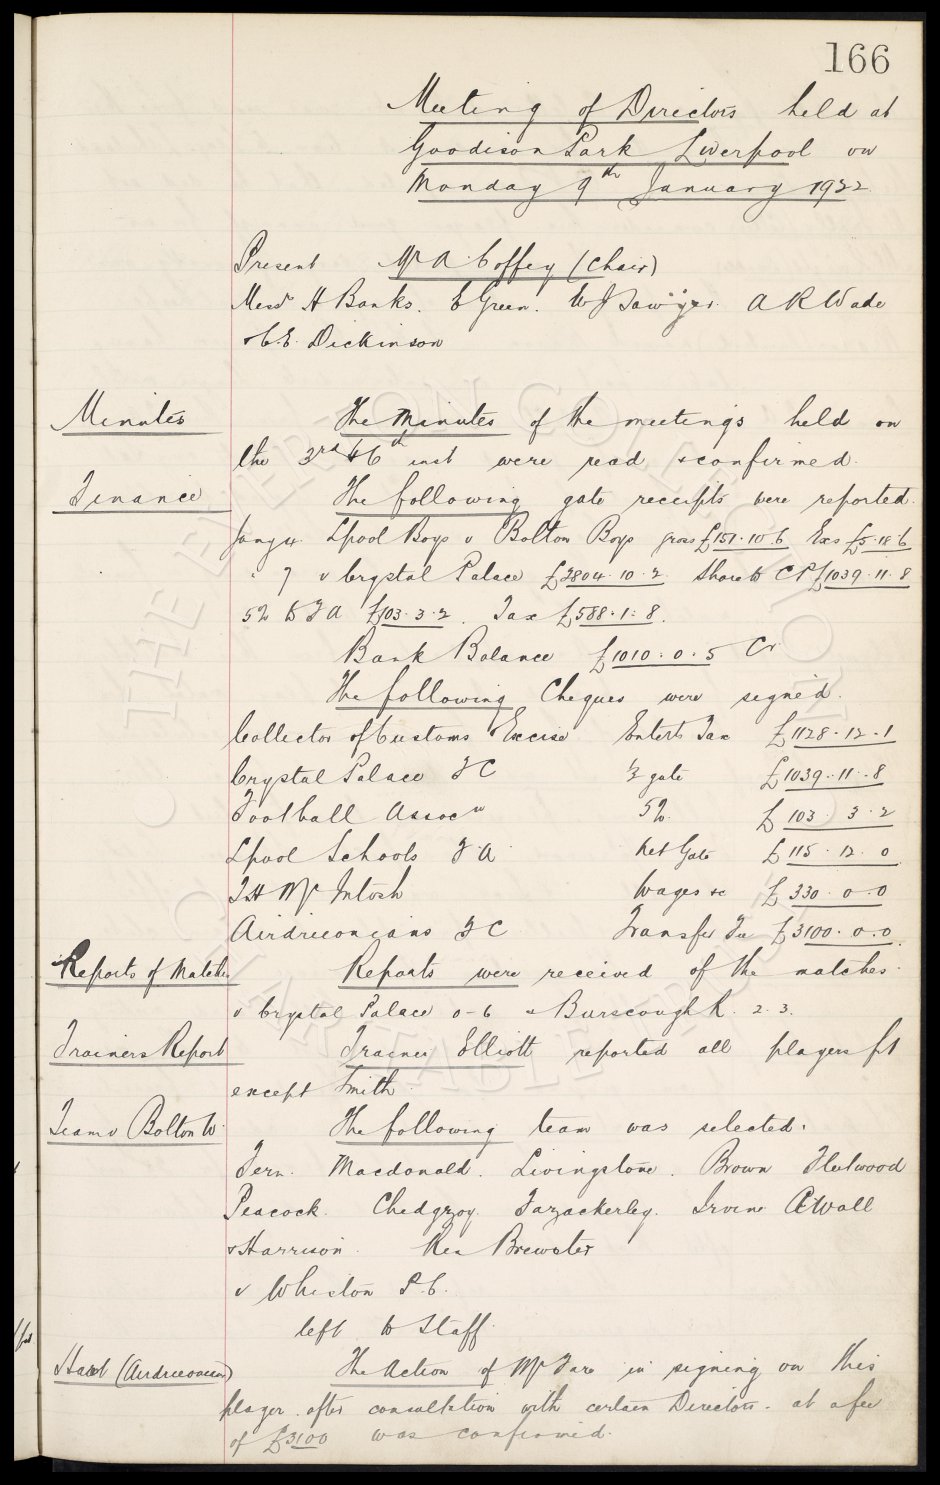 166
Meeting of Directors held at
Goodison Park Liverpool on
Monday 9th January 1922
Present Mr A Coffey (Chair)
Messrs H Banks. E Green. W J Sawyer. A R Wade
& C. E. Dickinson
Minutes The Minutes of the meetings held on
the 3rd & 6th inst were read & confirmed.
Finance The following gate receipts were reported.
Jany 4. Lpool Boys v Bolton Boys gross £151.10.6 Exs £5.18.6
" 7 v Crystal Palace £2804.10.2 Share to C P £1039.11.8
5% to F A £103.3.2. Tax £588.1.8.
Bank Balance £1010.0.5 Cr
The following Cheques were signed.
Collector of Customs Excise Enterts Tax £1128.12.1
Crystal Palace F C ½ gate £1039.11.8
Football Assocn 5% £103.3.2
Lpool Schools F.A. Net Gate £115.12.0
T H McIntosh Wages &c £330.0.0
Airdrieonians F C Transfer Fee £3100.0.0.
Reports of Matches Reports were received of the matches
v Crystal Palace 0-6 & Burscough R. 2.3.
Trainers Report Trainer Elliott reported all players fit
except Smith.
Team v Bolton W. The following team was selected.
Fern. Macdonald. Livingstone. Brown Fleetwood
Peacock. Chedgzoy. Fazackerley. Irvine Atwall
& Harrison. Res Brewster
v Whiston P.C.
left to Staff.
Hart (Airdrieonians) The action of Mr Fare in signing on this
player after consultation with certain Directors. at a fee
of £3100 was confirmed.